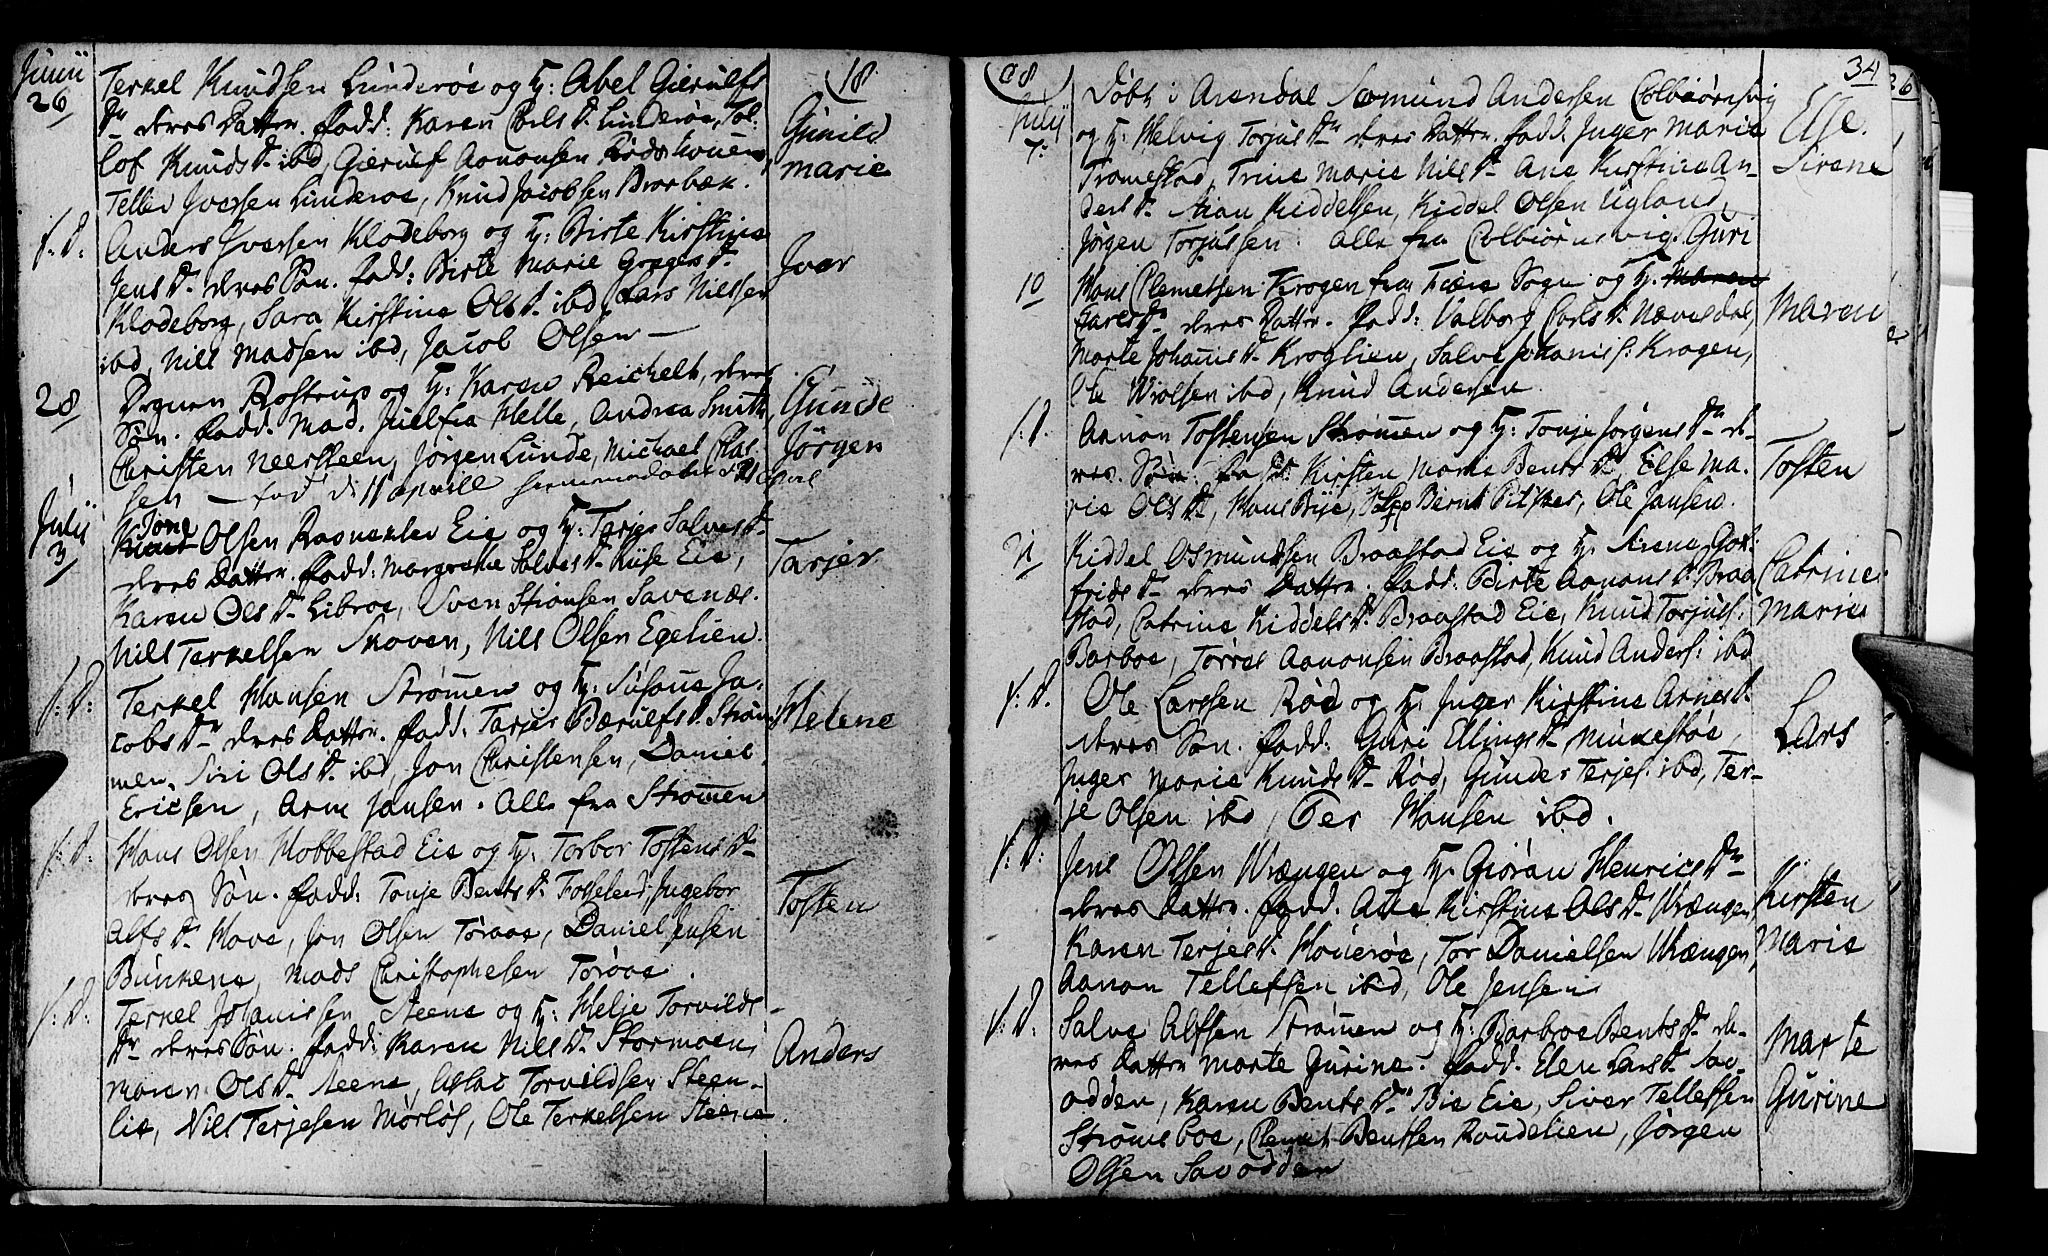 Junii
26
Terkel Knudsen Lunderøe og H: Abel Gierulfs
Dr deres Datter. fadd: Karen Carls Dr Lunderøe, Tol:
lof Knuds Dr ibd, Gierulf Aanonsen
Tellev Iversen Lunderoe, Knud Jacobsen Brorbæk.
18
Gunild
Marie
s: D: Anders Iversen Klodeborg og H: Birte Kirstine
Jens Dr deres Søn. fadd: Birte Marie Gregers Dr
Klodeborg, Sara Kirstine Ols Dr ibd, Lars Nilssen
ibd, Nils Madsen ibd, Jacob Olsen
Iver
28 Degnen Rostrup og H: Karen Reichelt, deres
Søn. fadd. Mad. Juel fra Helle, Andrea Smith
Christen Neersteen, Jørgen Lunde, Michael Clas
sen — fød d: 11 aprill hiemmedøbt d
Gunde
Jørgen
Julii
3
Jone
Olsen Ravnekler Eie og H: Tarjer Salves Dr
deres Datter. fadd: Margrethe Salves Dr Rise Eie,
Karen Ols Dr Libroe, Sven Simonsen Savenæs.
Nils Terkelsen Skoven, Nils Olsen Egelien.
Tarjer
s: D: Terkel Hansen Strømmen og H: Susane Ja-
cobs Dr deres Datter. fadd. Tarjer Bærulfs Dr Strøm
men, Siri Ols Dr ibd, Jon Christensen, Daniel
Ericsen, Arne Jansen. Alle fra Strømmen
Helene
s: D: Hans Olsen Hobbestad Eie og H: Torbor Tostens Dr
deres Søn. fadd: Tonje Bents Dr Fosselied, Ingebor
Alfs Dr Have, Jon Olsen Toraas, Daniel Jensen
Bunkene, Mads Christophersen Toraas.
Tosten
s: D: Terkel Johanissen Steene og H: Helje Torvilds
Dr deres Søn. fadd: Karen Nils Dr Stormoen,
Maren Ols Dr Steene, Aslac Torvildsen Steen-
lie, Nils Terjesen Mørfos, Ole Terkelsen Steene
Anders
08
34
Julii
7.
Døbt i Arendal Somund Andersen Colbiørnsvig
og H: Helvig Torjus Dr deres Datter. fadd. Inger Marie
Tromestad, Trine Marie Nils Dr Ane Kirstine An-
ders Dr Kiddelsen, Kiddel Olsen Ugland,
Jørgen Torjussen. Alle fra Colbiørnsvig.
Else
Sirene
10 Hans Clemetsen Krogen fra Fiære Sogn og H: Maren Guri
Dr deres Datter. fadd: Valborg Carls Dr Nævesdal,
Marte Johanis Dr Kroglien, Salve Johanis s: Krogen,
Ole Wiolsen ibd, Knud Andersen.
Maren
s: D. Aanon Tostensen Strømmen og H: Tonje Jørgens Dr de-
res Søn. fadd: Kirsten Marie Bents Dr, Else Ma-
rie Ols Dr, Hans Brye, Bernt Pitsker, Ole Jansen.
Tosten
Kiddel Osmundsen Braastad Eie og H: Sirene Got-
frids Dr deres Datter. fadd. Birte Aanons Dr Braa
stad, Catrine Kiddels Dr Braastad Eie, Knud Torjuss:
Barboe, Torres Aanonsen Braastad, Knud Anders: ibd
Catrine
Marie
s: D. Ole Larssen Røed og H: Inger Kirstine Arnes Dr
deres Søn. fadd: Guri Ellings Dr Minkestøe,
Inger Marie Knuds Dr Rød, Gunder Terjes: ibd, Ter-
je Olsen ibd, Ter Hansen ibd.
Lars
s: D: Jens Olsen Wrængen og H: Giøran Henrics Dr
deres Datter. fadd. Ane Kirstine Ols Dr Wrængen
Karen Terjes Dr Houerøe, Tor Danielsen Wrængen
Aanon Tellefsen ibd, Ole Jensen
Kirsten
Marie
s: D. Salve Alfsen Strømmen og H: Barbroe Bents Dr de-
res Datter Marte Gurine. fadd. Elen Lars Dr Sav-
odden, Karen Bents Dr Bie Eie, Siver Tellefsen
Strømsboe, Clemet Bentsen Roudelien, Jørgen
Olsen Savodden
Marte
Gurine